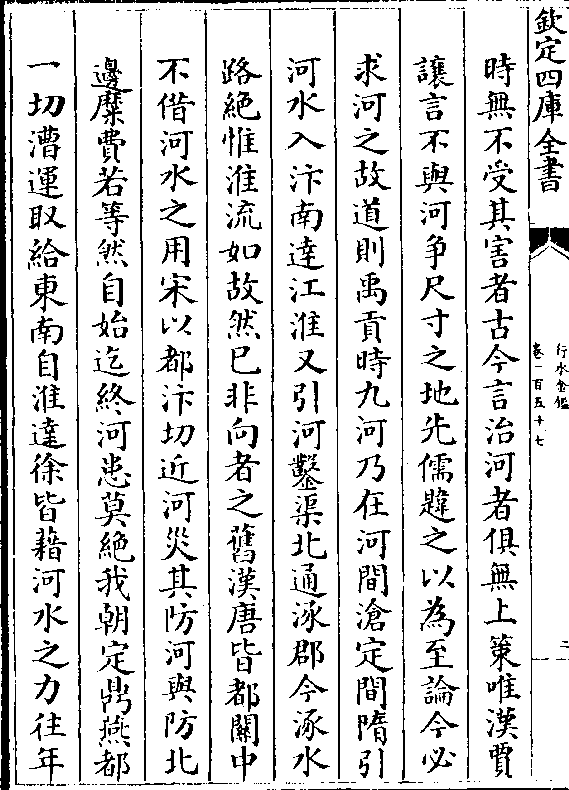 欽定四庫全書
行水金鑑
卷一百五十七
二
時無不受其害者古今言治河者俱無上策唯漢賈
讓言不與河爭尺寸之地先儒韙之以為至論今必
求河之故道則禹貢時九河乃在河間滄定間隋引
河水入汴南達江淮又引河鑿渠北通涿郡今涿水
路絶惟淮流如故然已非向者之舊漢唐皆都關中
不借河水之用宋以都汴切近河災其防河與防北
邊糜費若等然自始迄終河患莫絶我朝定鼎燕都
一切漕運取給東南自淮達徐皆藉河水之力往年